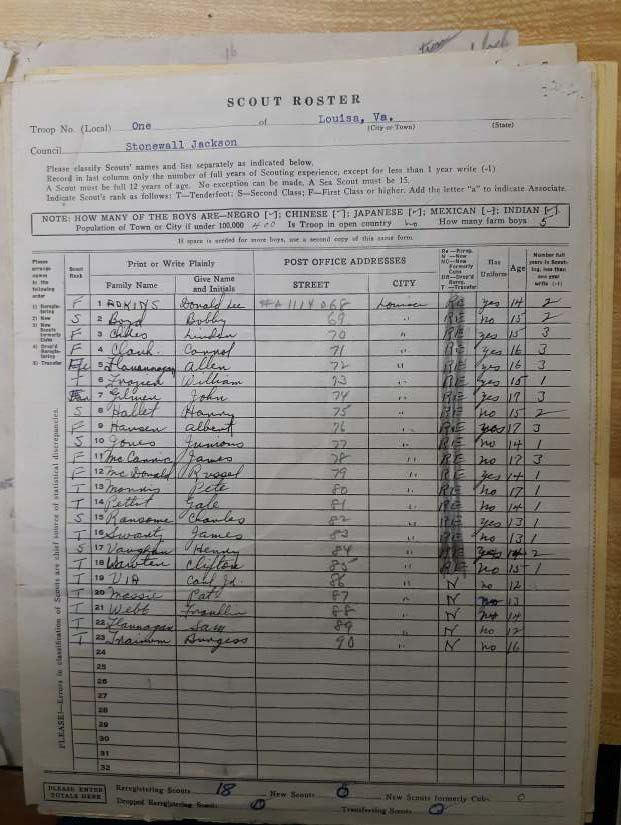 SCOUT ROSTER
Troop No. (Local) One of Louisa, Va.
(City or Town) (State)
Council Stonewall Jackson
Please classify Scouts' names and list separately as indicated below.
Record in last column only the number of full years of Scouting experience, except for less than 1 year write (-1)
A Scout must be full 12 years of age. No exception can be made. A Sea Scout must be 15.
Indicate Scout's rank as follows: T—Tenderfoot; S—Second Class; F—First Class or higher. Add the letter "a" to indicate Associate.
NOTE: HOW MANY OF THE BOYS ARE—NEGRO [-]; CHINESE [-]; JAPANESE [-]; MEXICAN [-]; INDIAN [-].
Population of Town or City if under 100,000 400 Is Troop in open country no How many farm boys 5
If space is needed for more boys, use a second copy of this same form.
Please arrange names in the following order
1) Reregistering
2) New
3) New Scouts formerly Cubs
4) Drop'd Reregistering
5) Transfer
Scout Rank
Print or Write Plainly
Family Name
Give Name and Initials
POST OFFICE ADDRESSES
STREET
CITY
Re—Rereg.
N—New
NC—New Formerly Cubs
DR—Drop'd Rereg.
T—Transfer
Has Uniform
Age
Number full years in Scouting, less than one year write (-1)
F 1 ADKINS Donald Lee 1114068 Louisa RE yes 14 2
S 2 Boyd Bobby 69 " RE no 15 2
F 3 70 " RE yes 15 3
F 4 71 " RE yes 16 3
5 Flannagan Allen 72 " RE yes 16 3
T 6 William 73 " RE yes 15 1
7 Gilmer John 74 " RE yes 17 3
S 8 Hallet Harry 75 " RE no 15 2
F 9 Hansen Albert 76 " RE 17 3
S 10 Jones Junious 77 " RE no 14 1
F 11 James 78 " RE no 17 3
F 12 McDonald Russel 79 " RE yes 14 1
T 13 Morris Pete 80 " RE no 17 1
T 14 Pettit Gale 81 " RE no 14 1
S 15 Ransome Charles 82 " RE yes 13 1
T 16 Swartz James 83 " RE no 13 1
S 17 Vaughan Henry 84 " RE yes 14 2
T 18 Clifton 85 " RE no 15 1
T 19 VIA Carl Jr. 86 " N no 12
T 20 Massie Pat 87 " N no 13
T 21 Webb Franklin 88 " N 14
T 22 Flannagan Sam 89 " N no 12
T 23 Trainum Burgess 90 " N no 16
24
25
26
27
28
29
30
31
32
PLEASE!—Errors in classification of Scouts are chief source of statistical discrepancies.
PLEASE ENTER TOTALS HERE
Reregistering Scouts 18 New Scouts New Scouts formerly Cubs 0
Dropped Reregistering Scouts 0 Transferring Scouts 0